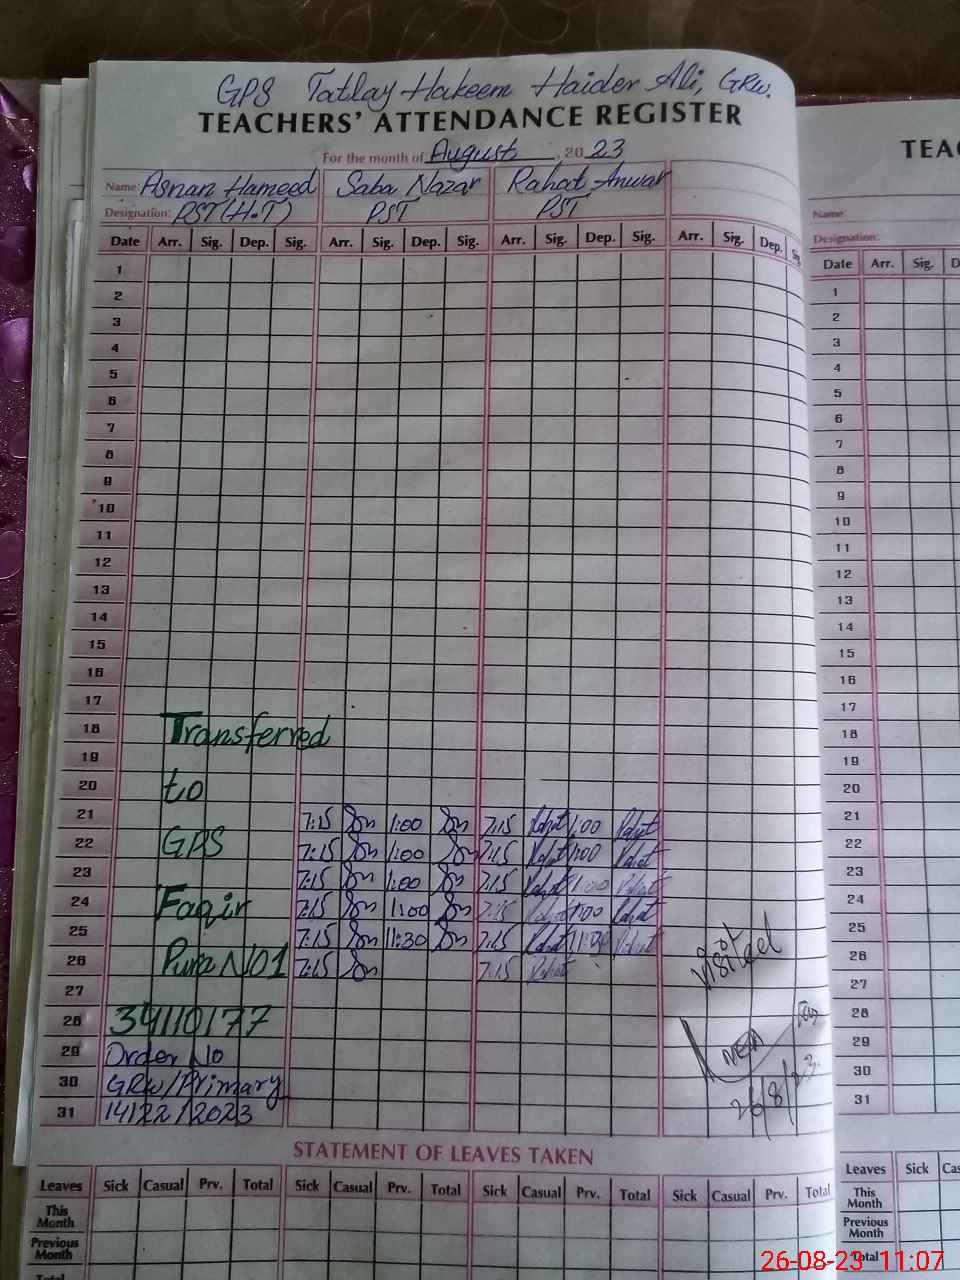 GPS Tatlay Hakeem Haider Ali, GRW.
TEACHERS' ATTENDANCE REGISTER
For the month of August, 2023
Name: Asnan Hameed Saba Nazar Rahat Anwar
Designation: PST(H.T) PST PST
Date Arr. Sig. Dep. Sig. Arr. Sig. Dep. Sig. Arr. Sig. Dep. Sig. Arr. Sig. Dep. Sig.
1
2
3
4
5
6
7
8
9
10
11
12
13
14
15
16
17
18 Transferred
19
20 to
21 7:15 1:00 7:15 Rahat 1:00 Rahat
22 GPS 7:15 1:00 7:15 Rahat 1:00 Rahat
23 7:15 1:00 7:15 Rahat 1:00 Rahat
24 Faqir 7:15 1:00 7:15 Rahat 1:00 Rahat
25 7:15 11:30 7:15 Rahat 11:30 Rahat
26 Pura NO1 7:15 7:15 Rahat
visited
27
28 34110177
29 Order No
30 GRW/Primary
31 14122/2023
26/8/23
STATEMENT OF LEAVES TAKEN
Leaves Sick Casual Prv. Total Sick Casual Prv. Total Sick Casual Prv. Total Sick Casual Prv. Total
This Month
Previous Month
Total
TEAC
Name:
Designation:
Date Arr. Sig. D
1
2
3
4
5
6
7
8
9
10
11
12
13
14
15
16
17
18
19
20
21
22
23
24
25
26
27
28
29
30
31
Leaves Sick Cas
This Month
Previous Month
Total
26-08-23 11:07